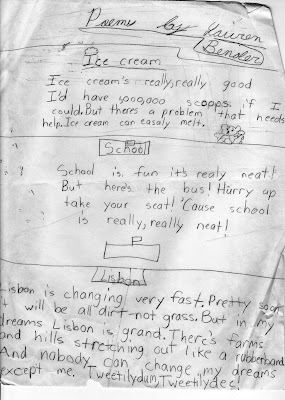 Poems by Lauren
Bender
Ice cream
Ice cream's really, really good
I'd have 500,000 scoops if I
could. But theres a problem that needs
help. Ice cream can easaly melt.
School
School is fun it's realy neat!
But here's the bus! Hurry up
take your seat! 'Cause school
is really, really neat!
Lisbon
Lisbon is changing very fast. Pretty soon
it will be all dirt-not grass. But in my
dreams Lisbon is grand. There's farms
and hills stretching out like a rubberband.
And nobody can change my dreams
except me. Tweetilydum, Tweetilydee!